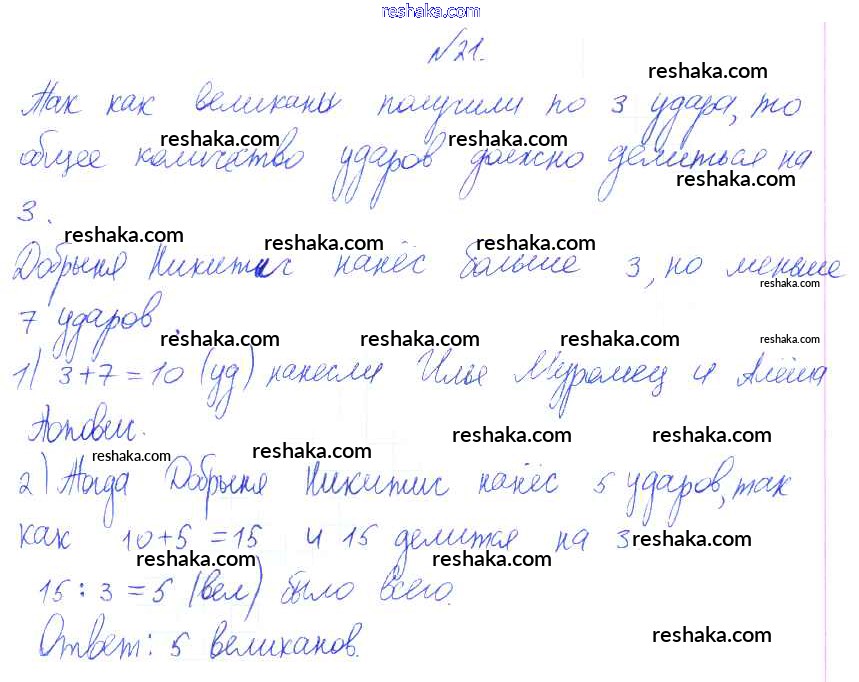 reshaka.com
№21.
reshaka.com
Так как великаны получили по 3 удара, то
reshaka.com reshaka.com
общее количество ударов должно делиться на
reshaka.com
3.
reshaka.com reshaka.com reshaka.com
Добрыня Никитич нанёс больше 3, но меньше
reshaka.com
7 ударов.
reshaka.com reshaka.com reshaka.com reshaka.com
1) 3+7=10 (уд) нанесли Илья Муромец и Алёша
Попович.
reshaka.com reshaka.com reshaka.com reshaka.com
2) Тогда Добрыня Никитич нанёс 5 ударов, так
как 10+5=15 и 15 делится на 3
reshaka.com
reshaka.com reshaka.com
15 : 3 = 5 (вел) было всего.
Ответ: 5 великанов.
reshaka.com